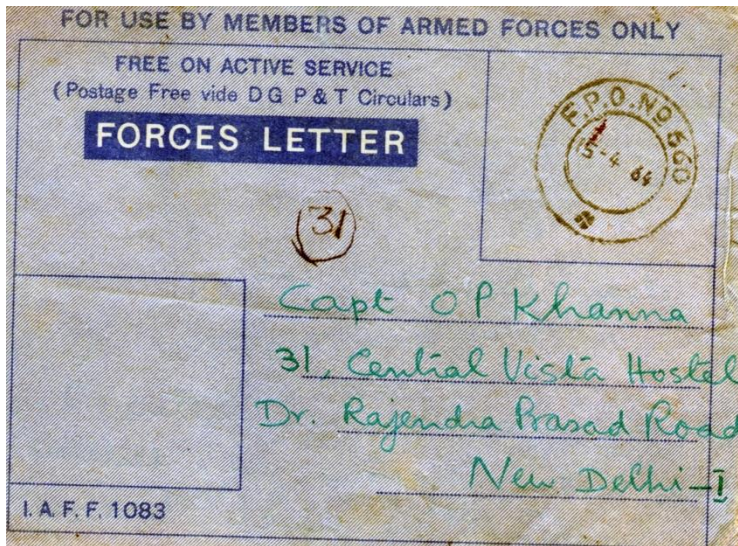 FOR USE BY MEMBERS OF ARMED FORCES ONLY
FREE ON ACTIVE SERVICE
(Postage Free vide D G P & T Circulars)
FORCES LETTER
F.P.O. NO 560
15-4 64
31
Capt O P Khanna
31, Central Vista Hostel
Dr. Rajendra Prasad Road
New Delhi-I
I. A. F. F. 1083